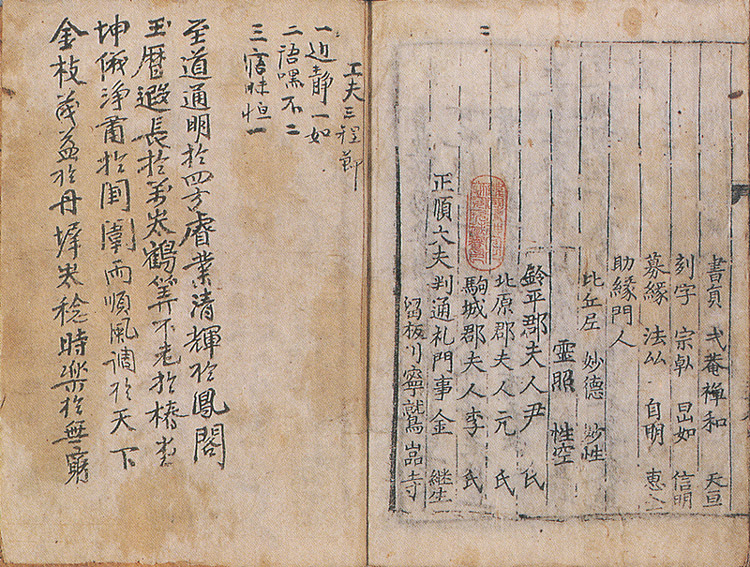 書員 弍菴禅和 天亘
刻字 宗倬 旵如 信明
募縁 法厸 自明 惠全
助縁門人
比丘尼 妙德 妙性
霊照 性空
鈴平郡夫人尹 氏
北原郡夫人元 氏
駒城郡夫人李 氏
正順大夫判通礼門事金 継生
留板川寧鷲嵓寺
工夫三程節
一 近静一如
二 語嘿不二
三 寤昧恒一
至道通明扵四方睿業清輝扵鳳閣
玉曆遐長扵萬歲鶴筭不老扵椿
坤儀淨肅扵閨闈雨順風调扵天下
金枝茂益扵丹墀歲稔時樂扵無窮